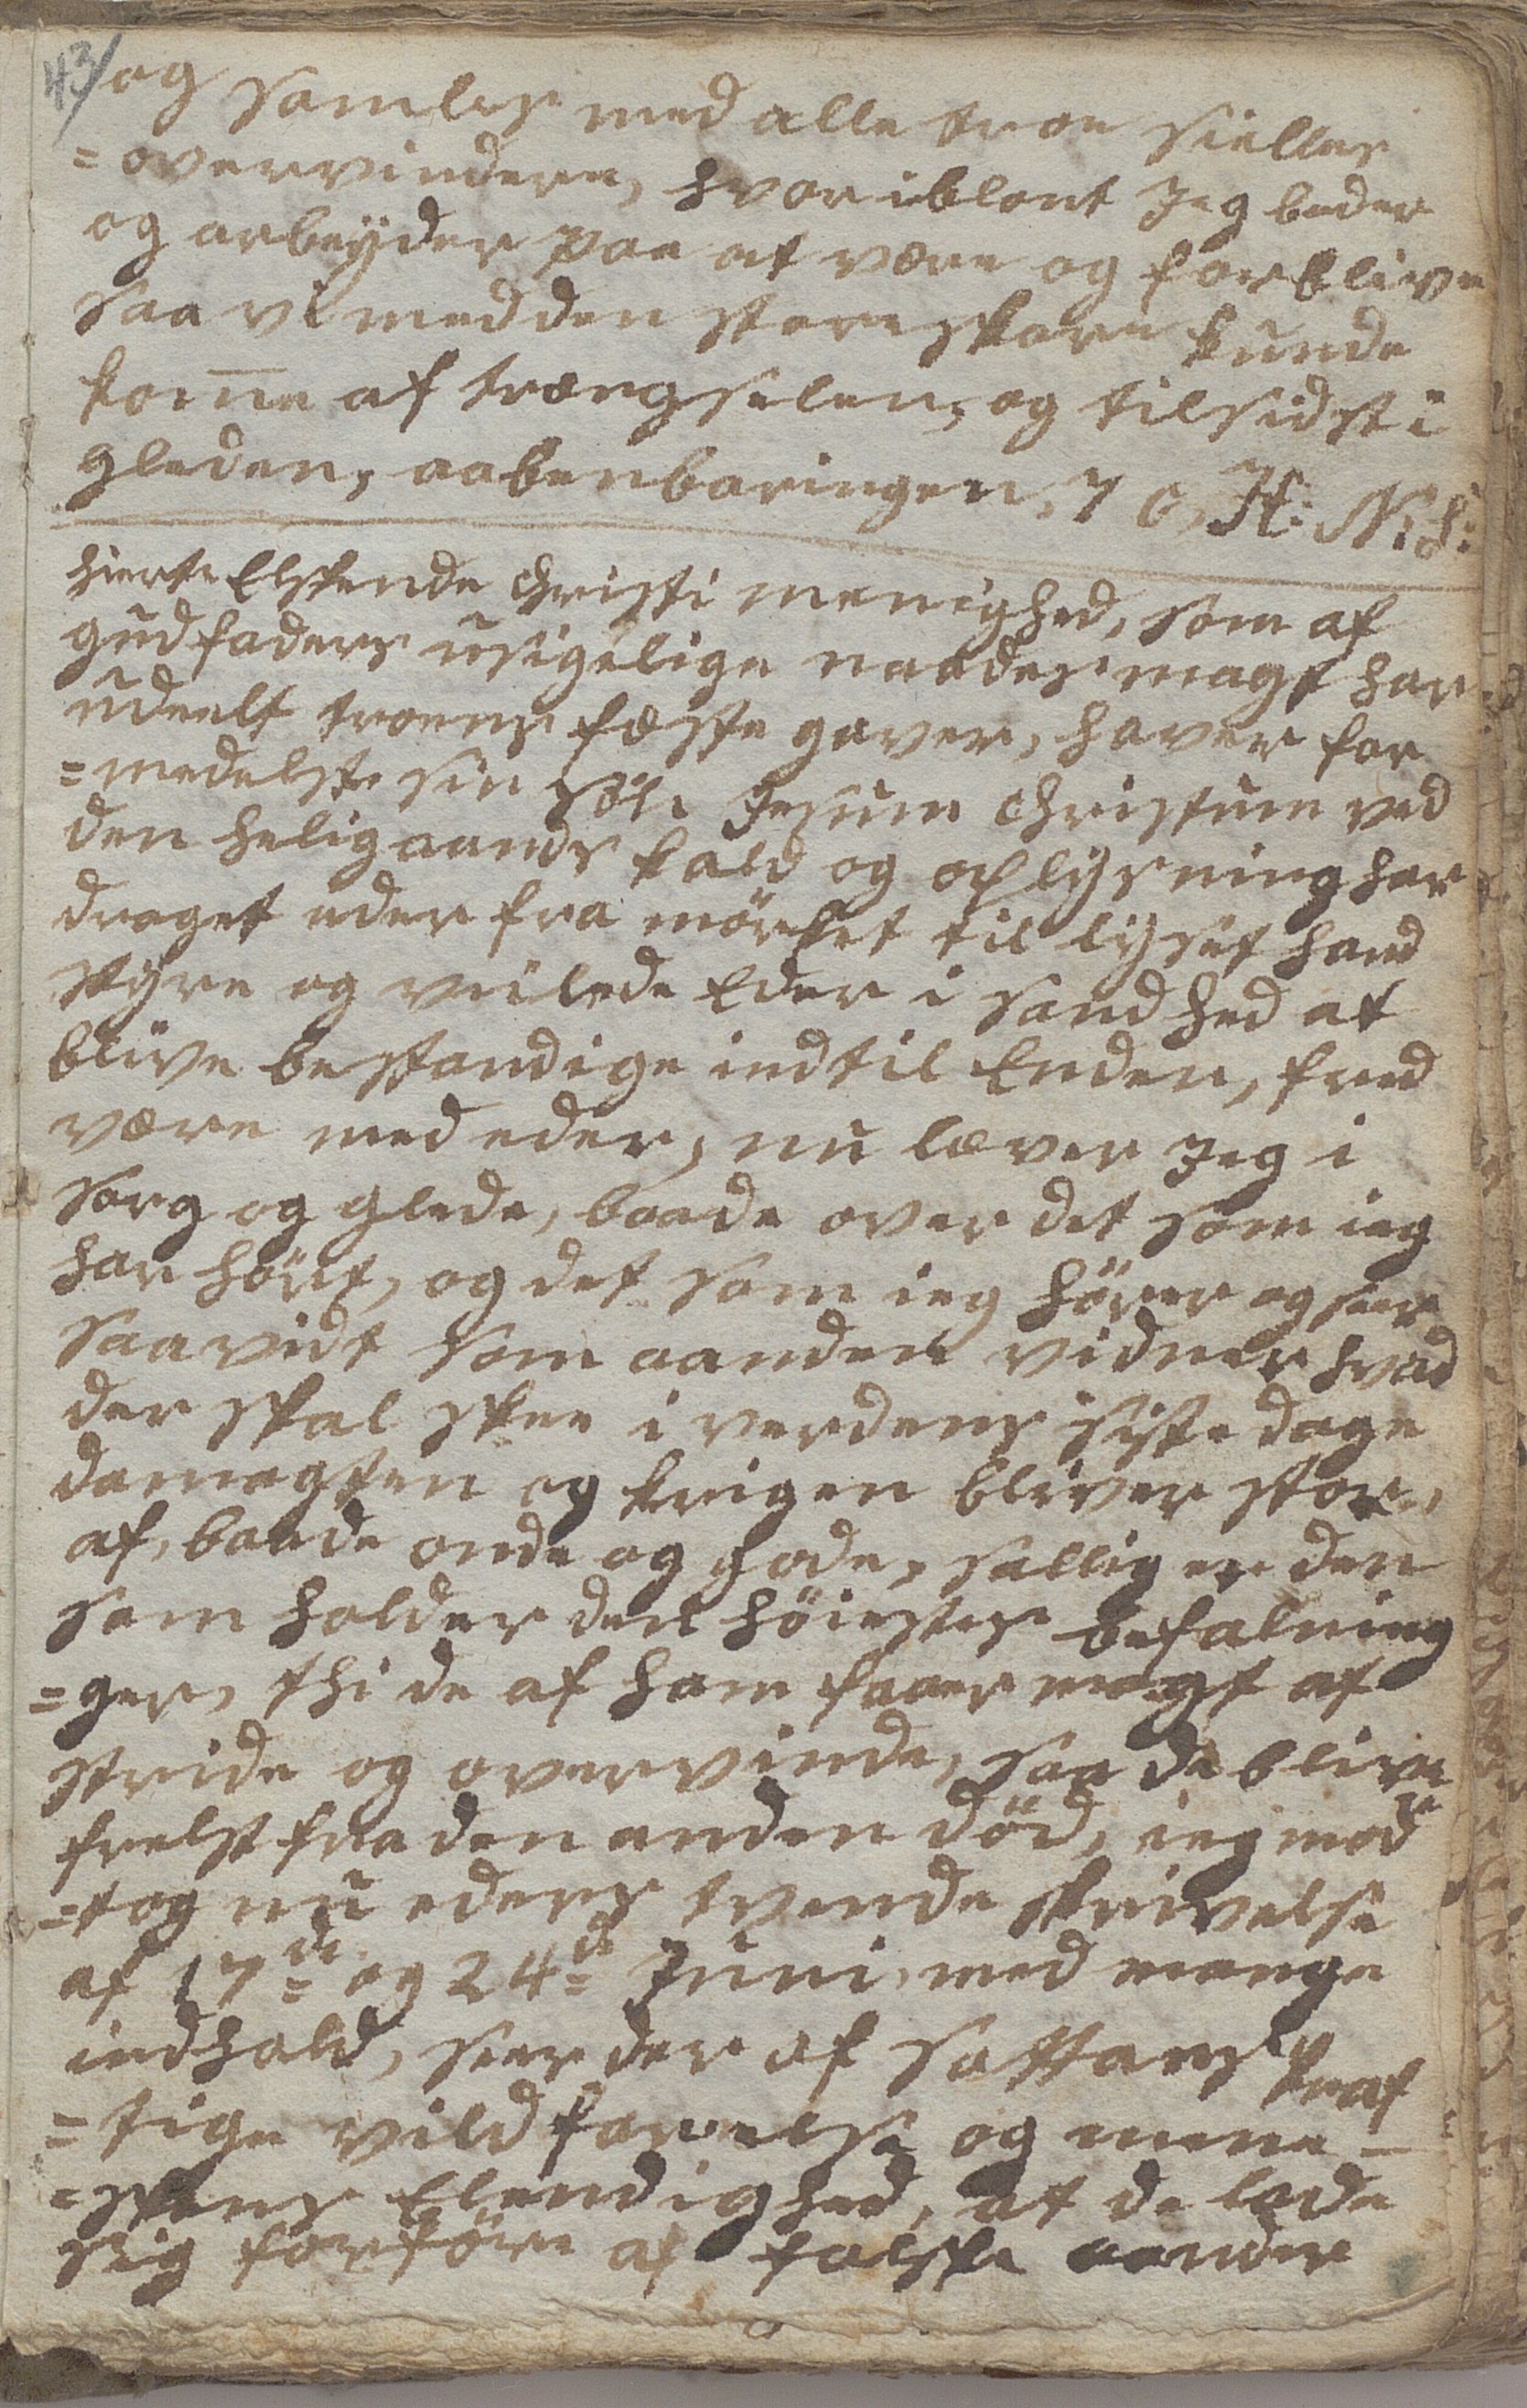 43/ og samles med alle troe siælles
=overvindere, hvor iblant Jeg beder
og arbeyder paa at være og forblive
saa vi med den store skare kunde
kom̅e af trængselen, og tilsidst i
gleden, aabenbaringen, 7 C, H: N: S:
hierte Elskende Christi menighed, som af
gudfaders usigelige naades magt har
udeelt troens første gaver, haver for
=medelst sin sön Jesum Christum ved
den helig aands kald og oplysning har
draget eder fra mörket til lyset hand
styre og veilede Eder i sandhed at
blive bestandige indtil Enden, fred
være med eder, nu lever Jeg i
sorg og glede, baade over det som ieg
har hört, og det som ieg hörer og seer
saavidt som aanden vidner hvad
der skal skee i verdens siste dage
da magten og krigen bliver stor,
af, baade onde og gode, sallig er den
som holder den höiestes befalning
=ger, thi de af ham faaer magt at
stride og overvinde, saa de blive
frelst fra den anden död, ieg mod
=tog nu eders tvende skrivelse
af 17de og 24de Juni, med mange
indhold, seer der af Sattans kraf
=tige vildfarelse og menne=
=skens Elendighed, at de lade
sig forföre af falske aander